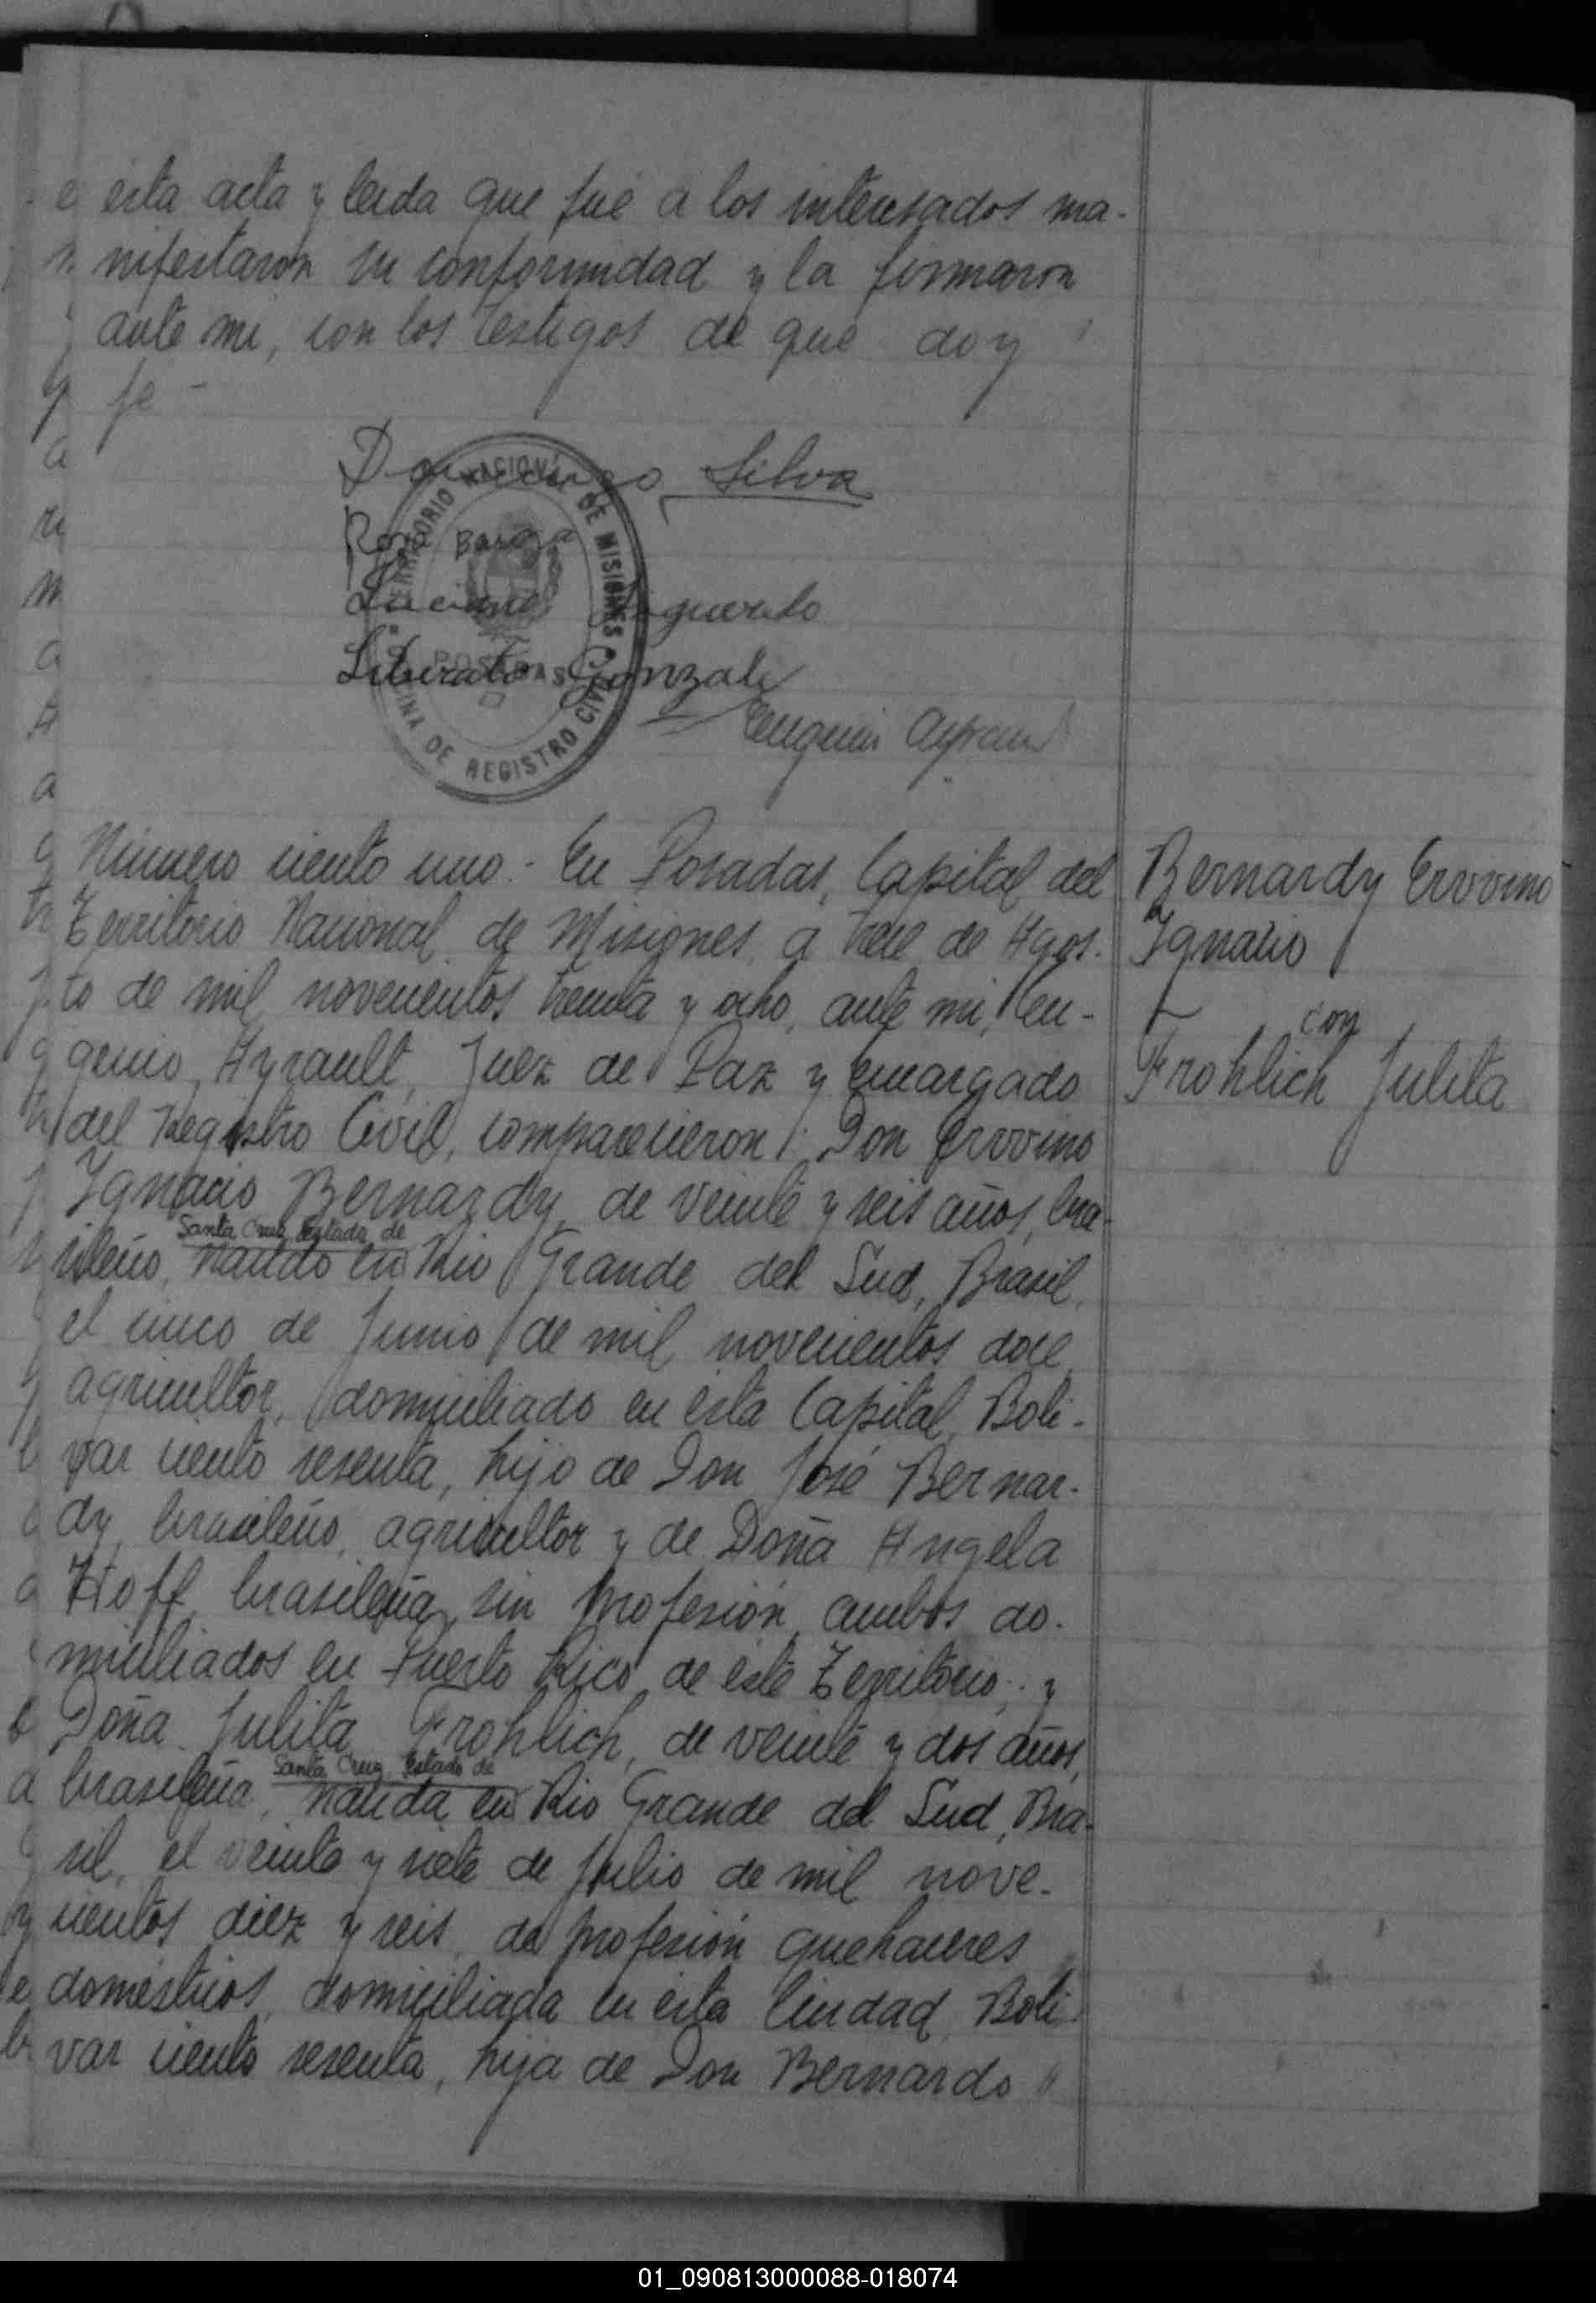 esta acta y leida que fué a los interesados ma-
nifestaron su conformidad y la firmaron
ante mi, con los testigos de que doy
fe -
Domingo Silva
Luciano
Liberato Gonzalez
Eugenio Ayrault
TERRITORIO NACIONAL DE MISIONES
POSADAS
OFICINA DE REGISTRO CIVIL
Número ciento uno.- En Posadas, Capital del
Territorio Nacional de Misiones, a trece de Agos-
to de mil novecientos treinta y ocho, ante mi, Eu-
genio Ayrault, Juez de Paz y Encargado
del Registro Civil, comparecieron: Don Ervvino
Ignacio Bernardy, de veinte y seis años, bra-
Santa Cruz, Estado de
sileño, nacido en Rio Grande del Sud, Brasil,
el cinco de Junio de mil novecientos doce,
agricultor, domiciliado en esta Capital, Boli-
var ciento sesenta, hijo de Don José Bernar-
dy, brasileño, agricultor y de Doña Angela
Hoff, brasileña, sin profesión, ambos do-
miciliados en Puerto Rico, de este Territorio; y
Doña Julita Frohlich, de veinte y dos años,
Santa Cruz, Estado de
brasileña, nacida en Rio Grande del Sud, Bra-
sil, el veinte y siete de Julio de mil nove-
cientos diez y seis, de profesión quehaceres
domésticos, domiciliada en esta Ciudad, Boli-
var ciento sesenta, hija de Don Bernardo
Bernardy Ervvino
Ignacio
con
Frohlich Julita
01_090813000088-018074